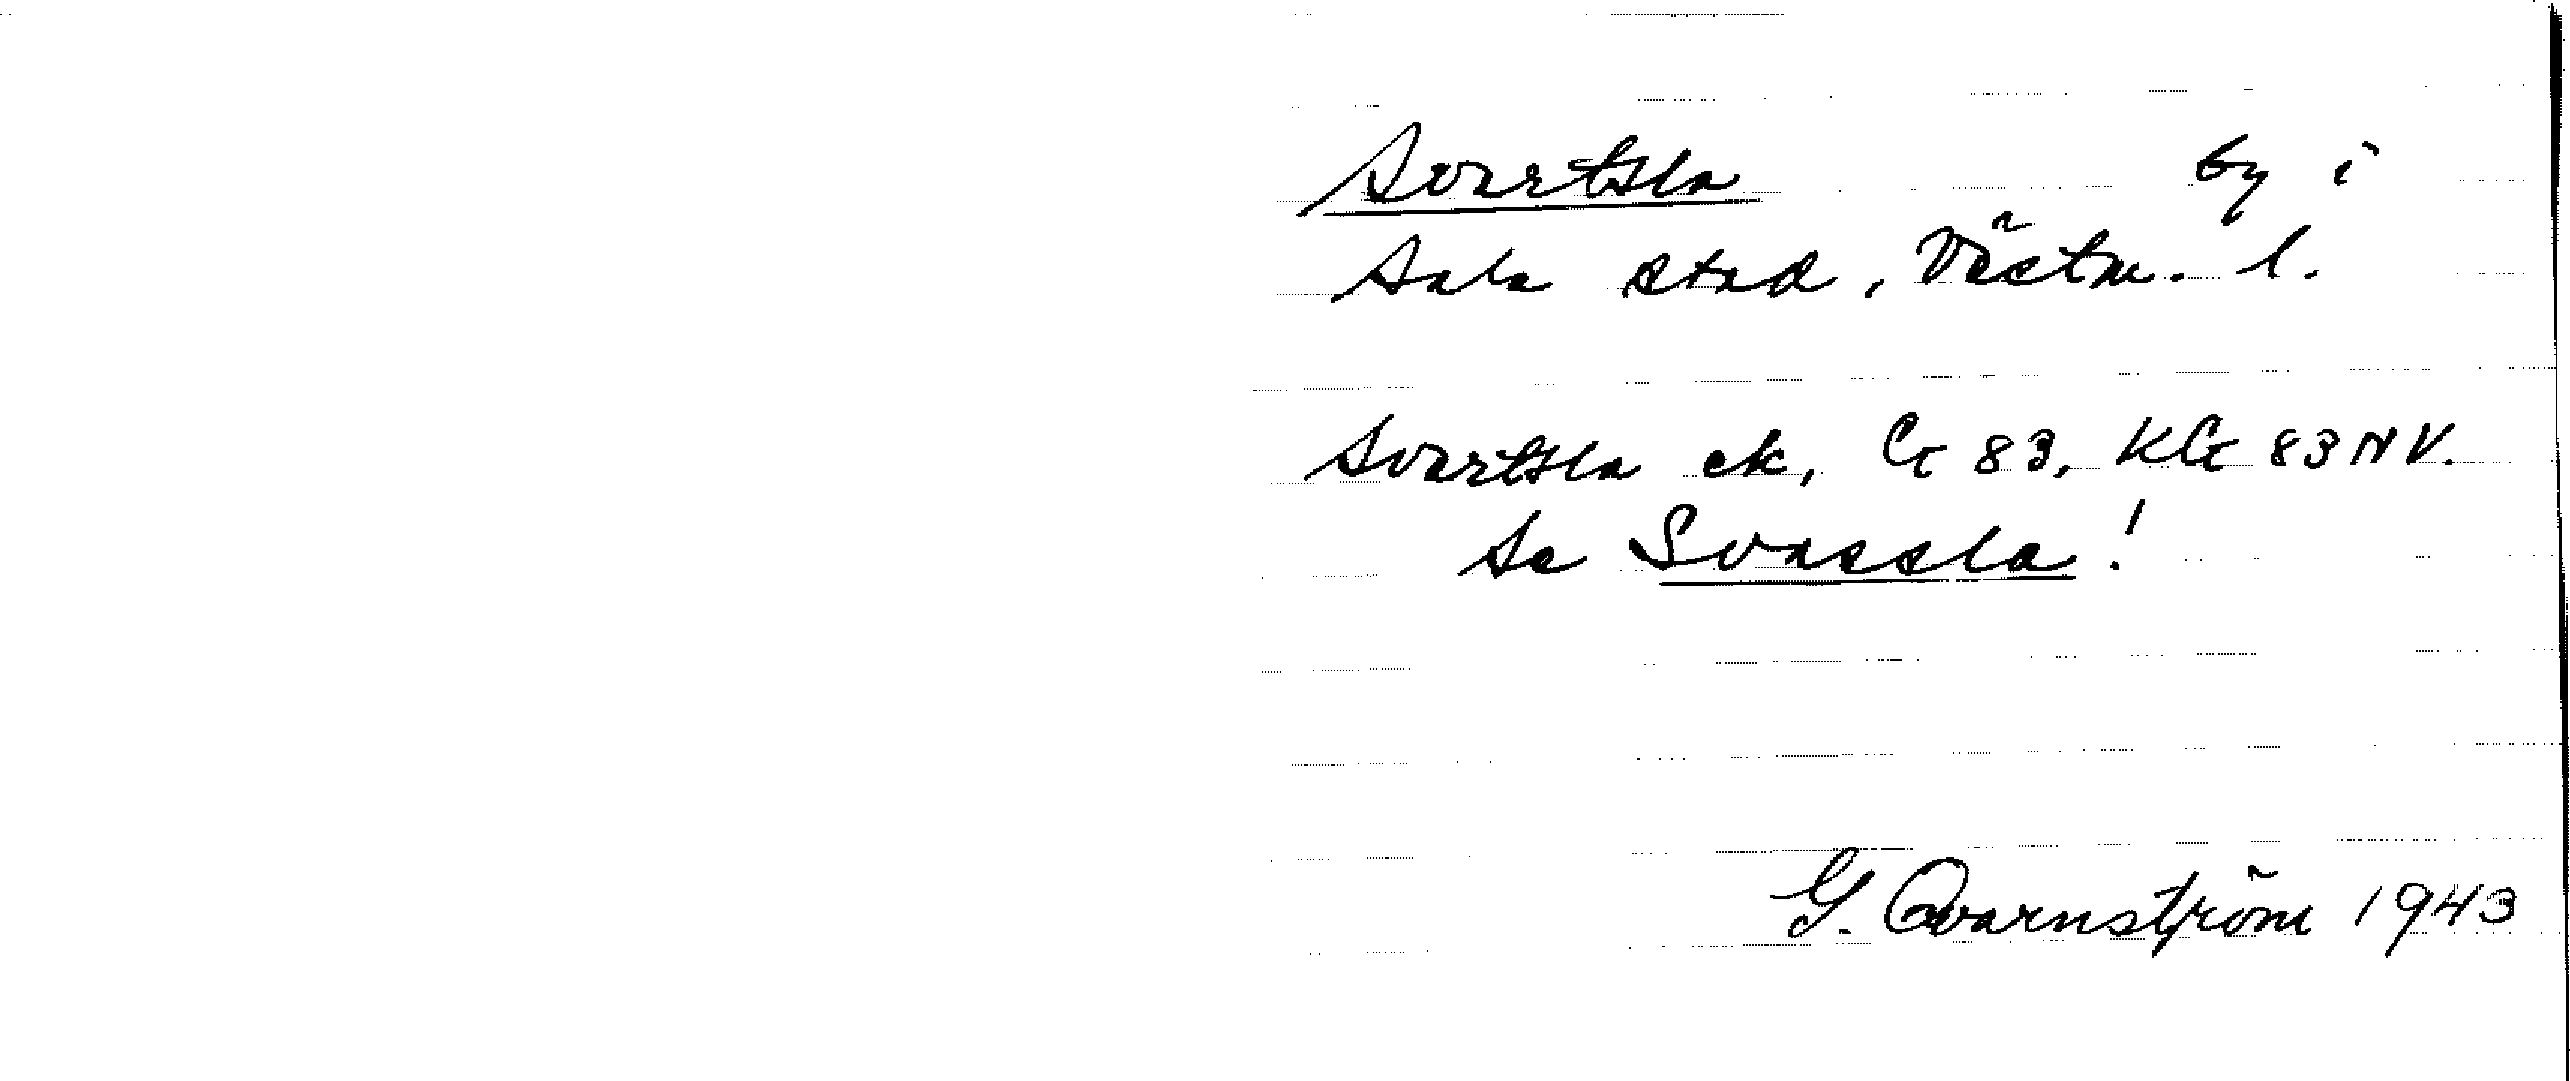 Svartsla by i
Sala stad, Västm. l.
Svartsla ek, G 83, KG 83 NV.
Se Svassla!
G. Qvarnström 1943